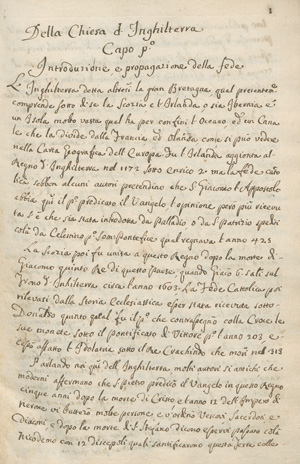 1
Della Chiesa d Inghilterra
Capo p.º
Introduzione e propagazione della fede
L'Inghilterra detta altresì la gran Bretagna qual presentem.
comprende sotto di se la Scozia et l'Irlanda o sia Ibernia è
un Isola molto vasta qual ha per confini l'Oceano ed un Cana
le che la divide dalla Francia ed Olanda come si può vedere
nella Carta Geografica dell'Europa. Fu l'Irlanda aggionta al
Regno d'Inghilterra nel 1172 sotto Enrico 2.º ma la fede cato
lica sebben alcuni autori pretendino che S. Giacomo l'Apostolo
abbia qui il p.º predicato il Vangelo l'opinione però più ricevu
ta s'è che sia stata introdotta da Palladio o da S. Patrizio spediti
colà da Celestino p.º Som. Pontefice qual regnava l'anno 423
La Scozia poi fu unita a questo Regno dopo la morte di
Giacomo quinto Re di questo Paese quando Giac.º 6.º salì sul
Trono d'Inghilterra circa l'anno 1603. La fede Catolica poi
rilevasi dalla Storia Ecclesiastica esser stata ricevuta sotto
Donaldo quinto qual fu il p.º che contrasegnò colla Croce le
sue monete sotto il pontificato di Vittore p.º l'anno 203 e
capo affatto l'Idolatria sotto il Re Crachindo che morì nel 313
Parlando noi qui dell'Inghilterra molti autori sì antichi che
moderni affermano che S. Pietro predicò il Vangelo in questo Regno
cinque anni dopo la morte di Cristo e l'anno 12 dell'Impero di
Nerone vi battezzò molte persone e v'ordinò Vescovi Sacerdoti e
Diaconi, e dopo la morte di S. Stefano dicono esservi passato colà
Nicodemo con 12 discepoli quali santificarono questa terre colle